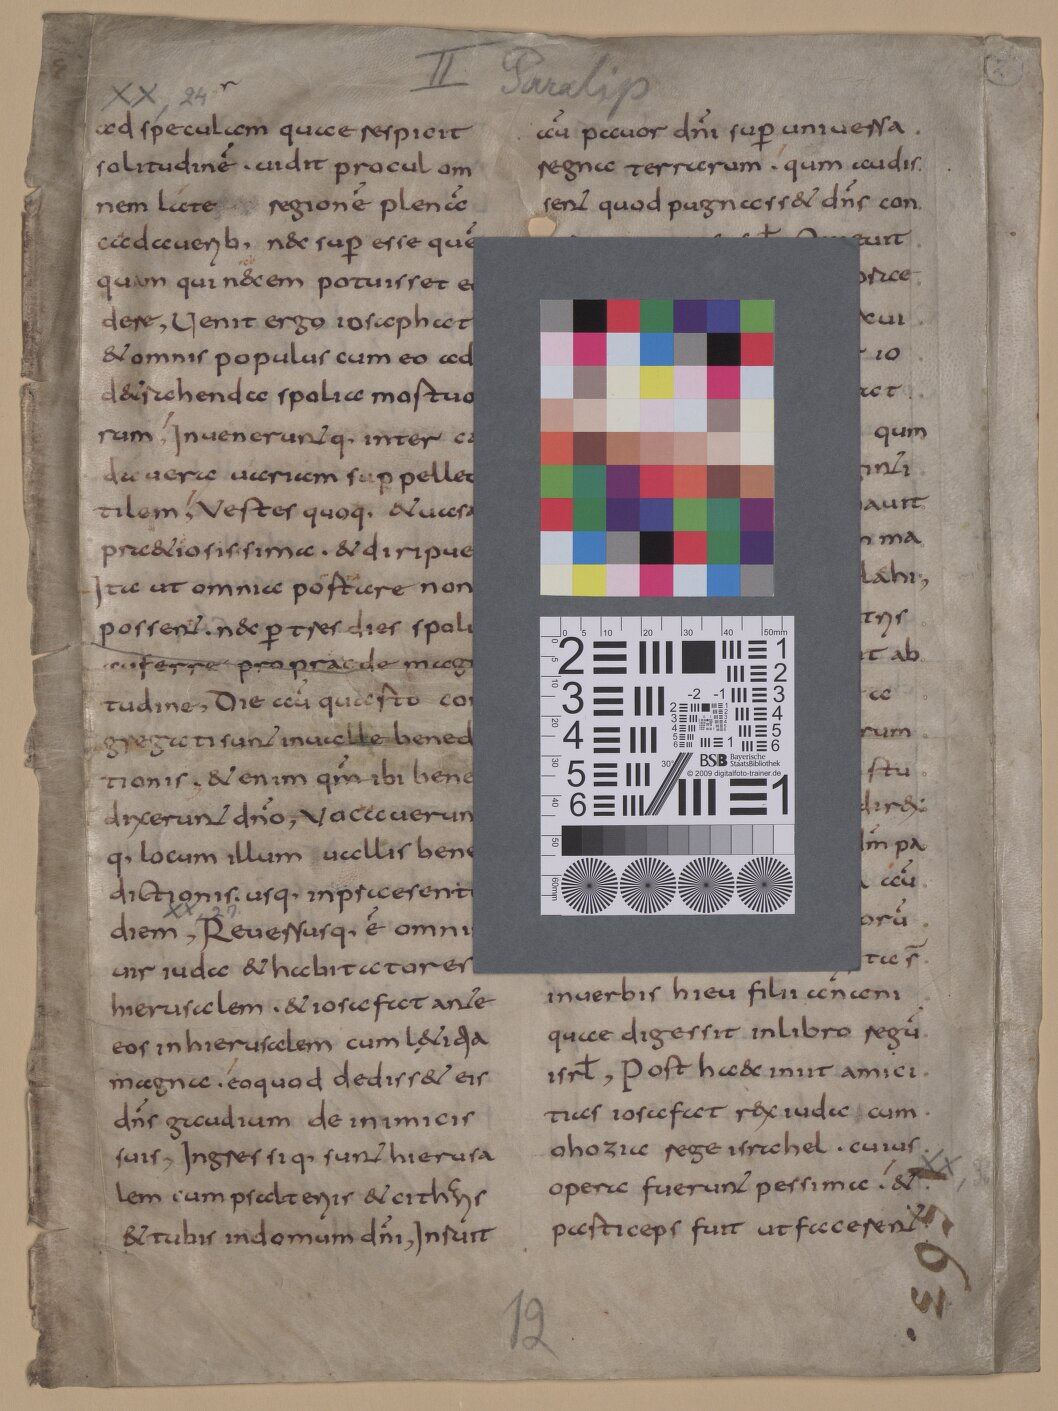 II Paralip
XX, 24
ad speculam quae respicit
solitudinē. uidit procul om
nem late regionē plenā
cadauerib, n& sup esse quē
quam qui n&em potuisset e
dere, Uenit ergo iosaphat
& omnis populus cum eo ad
d&rahenda spolia mortuo
rum, Inuenerunt q, inter ca
dauera uariam suppellec
tilem, Vestes quoq, & uasa
pr&iosissima. & diripue
Ita ut omnia portare non
possent. n& p tres dies spoli
auferre pro prae de mag
tudine, Die aū quarto con
gregati sunt in ualle bened
tionis. & enim qm ibi bene
dixerunt dño, Vocauerun
q, locum illum uallis bene
dictionis. usq, in praesent
XX, 27
diem, Reuersusq, ē omni
uir iuda & habitatores
hierusalem. & iosafat ante
eos in hierusalem cum l&itia
magna. eoquod dediss& eis
dñs gaudium de inimicis
suis, Ingressi q, sunt hierusa
lem cum psalteriis & citharis
& tubis in domum dñi, Inruit
aū pauor dñi sup uniuersa
regna terrarum. qum audis
sent quod pugnass& dñs con
qum
ma
ab
pa
aū
in uerbis hieu filii anani
quae digessit in libro regū
isrl, Post haec iniit amici
tias iosafat rex iuda cum
ohozia rege israhel. cuius
opera fuerunt pessima. &
particeps fuit ut facerent
12
0 5 10 20 30 40 50mm
2 1
2
3 3
4 4
5 5
6 6
-2 -1
1
30°
BSB Bayerische
StaatsBibliothek
© 2009 digitalfoto-trainer.de
1